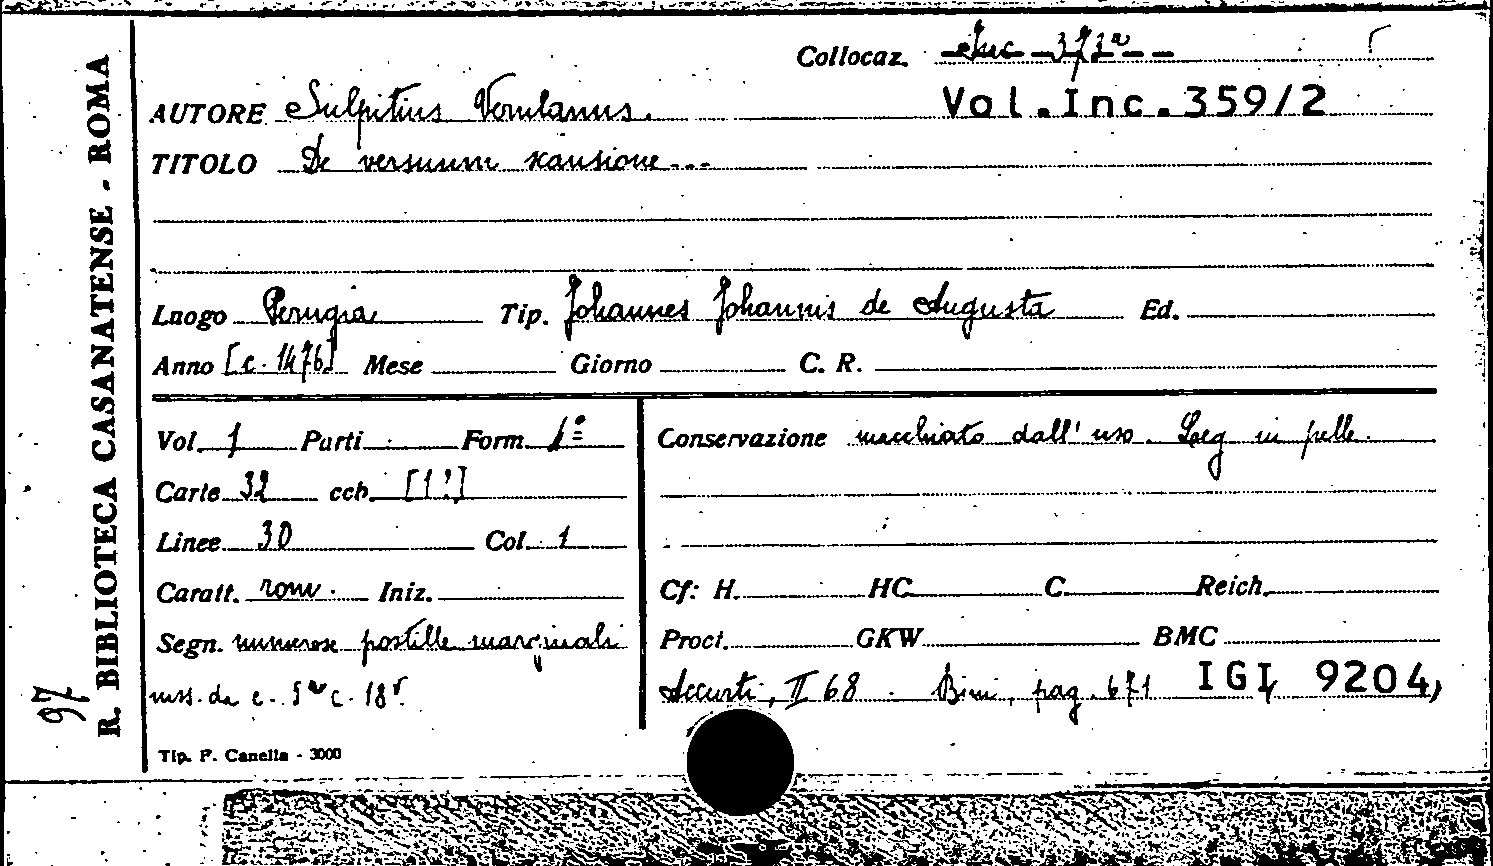 R. BIBLIOTECA CASANATENSE - ROMA
97
Collocaz. Inc 373a
AUTORE Sulpitius Verulanus. Vol.Inc.359/2
TITOLO De versuum scansione...
Luogo Perugia Tip. Johannes Johannis de Augusta Ed.
Anno [c. 1476] Mese Giorno C. R.
Vol. 1 Parti Form. 4º
Carte 32 ccb. [1!]
Linee 30 Col. 1
Caratt. rom. Iniz.
Segn. numerose postille marginali
mss. da c. 5v c. 18r.
Conservazione macchiato dall'uso. Leg in pelle.
Cf: H. HC. C. Reich.
Proct. GKW BMC
Accurti, II 68. Bini, pag. 671 IGI, 9204,
Tip. F. Canella - 3000